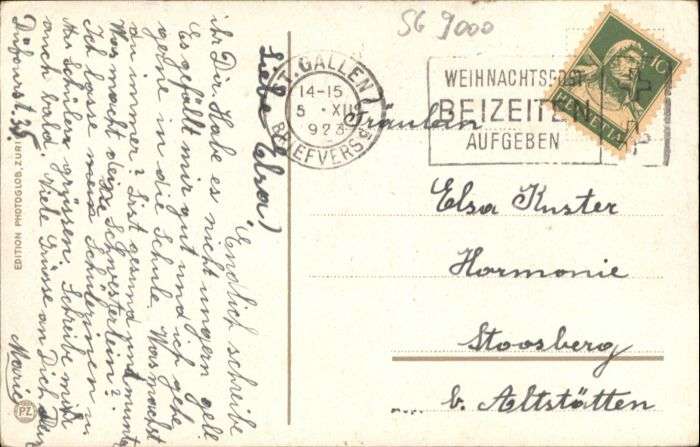 SG 9000
ST. GALLEN 1
14-15
5. XII
1923
BRIEFVERSAND
WEIHNACHTSPOST
BEIZEITEN
AUFGEBEN
10
HELVETIA
Fräulein
Elsa Kuster
Harmonie
Stoosberg
b. Altstätten
Liebe Elsa!
Endlich schreibe
ich Dir. Habe es nicht ungern gell.
Es gefällt mir gut und ich gehe
gerne in die Schule. Was machst
du immer? Bist gesund und munter
Was macht dein Schwesterlein?
Ich lasse meine Schülerinnen u.
Schülern grüssen. Schreibe mir
auch bald. Viele Grüsse an Dich
Dufourst. 35.
Marie
EDITION PHOTOGLOB, ZÜRICH
PZ